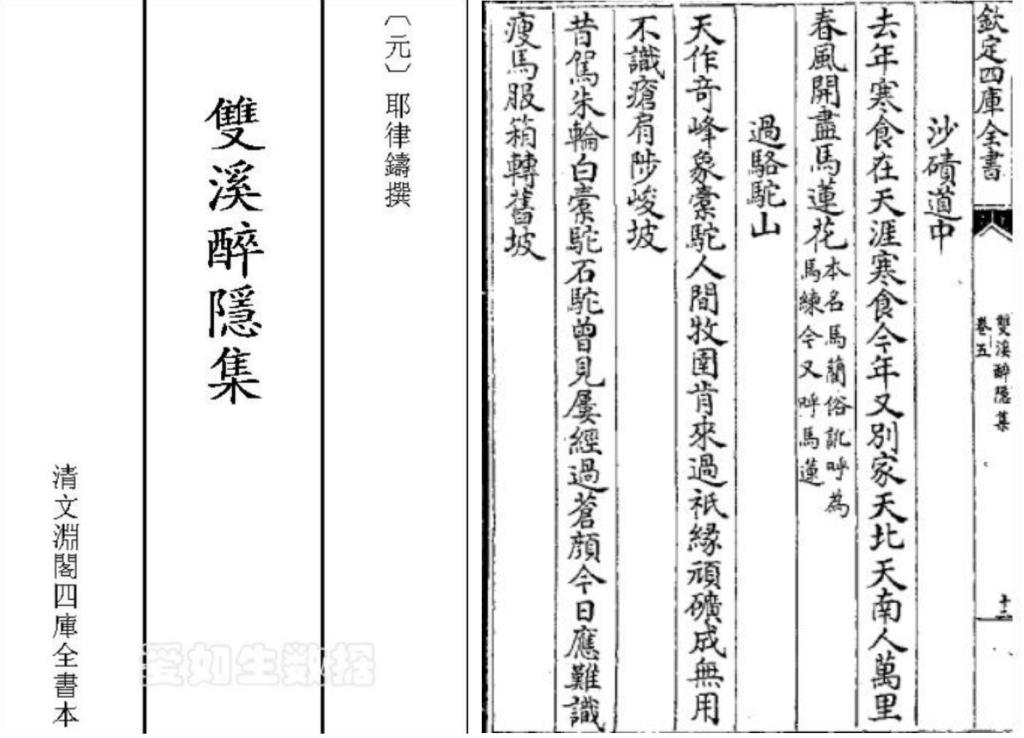 欽定四庫全書
雙溪醉隱集
卷五
十二
沙磧道中
去年寒食在天涯寒食今年又別家天北天南人萬里
春風開盡馬蓮花本名馬藺俗訛呼為
馬練今又呼馬蓮
過駱駝山
天作奇峰象橐駝人間牧圉肯來過祇緣頑礦成無用
不識瘡肩陟峻坡
昔駕朱輪白橐駝石駝曾見屢經過蒼顔今日應難識
瘦馬服箱轉舊坡
〔元〕耶律鑄撰
雙溪醉隱集
清文淵閣四庫全書本
愛如生数据